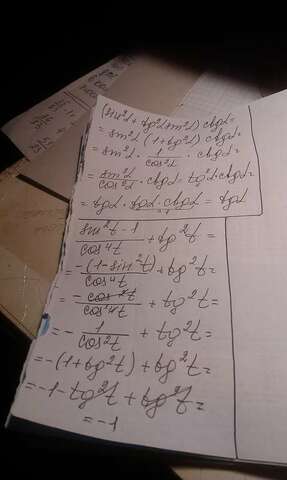 (sin²α + tg²α sin²α) ctgα =
= sin²α (1 + tg²α) ctgα =
= sin²α · 1/cos²α · ctgα =
= sin²α/cos²α · ctgα = tg²α · ctgα =
= tgα · tgα · ctgα = tgα
(sin²t - 1)/cos⁴t + tg²t =
= -(1 - sin²t)/cos⁴t + tg²t =
= - cos²t/cos⁴t + tg²t =
= - 1/cos²t + tg²t =
= -(1 + tg²t) + tg²t =
= -1 - tg²t + tg²t =
= -1